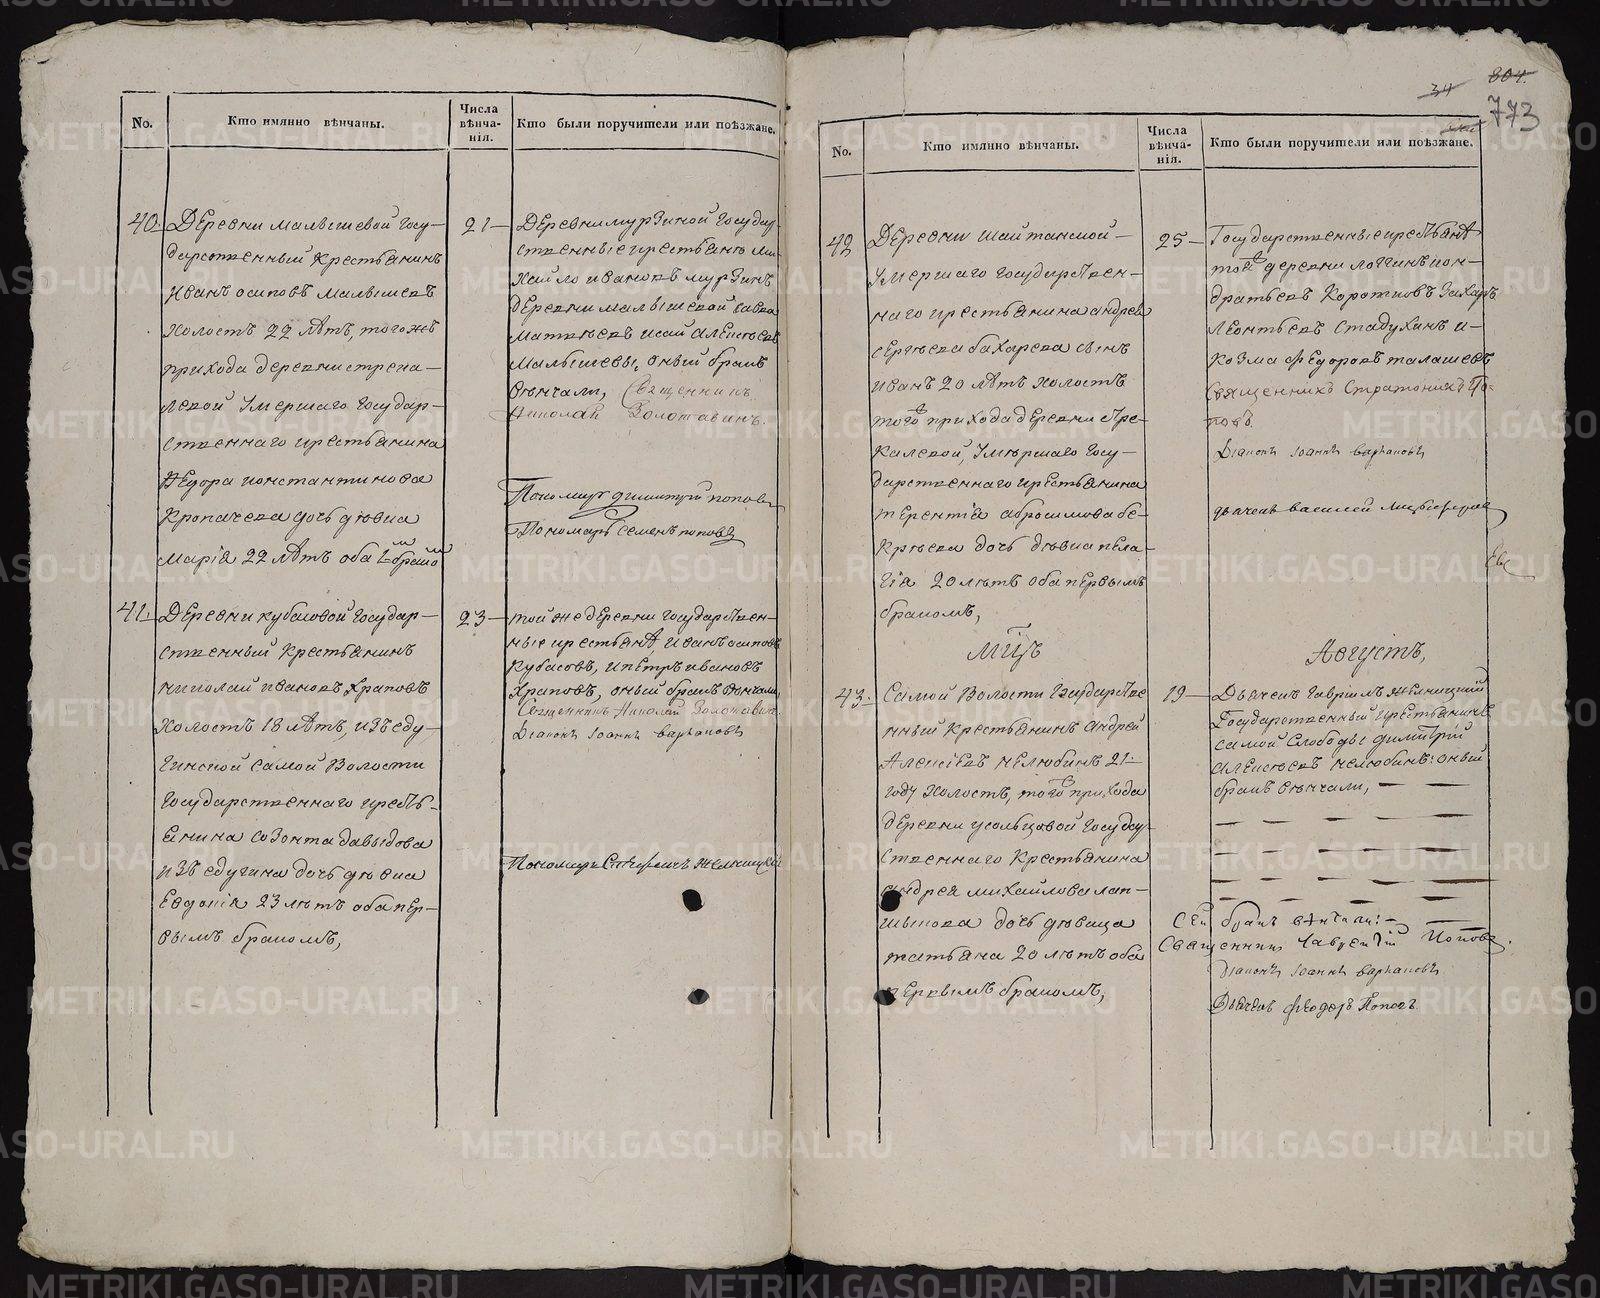 No.
Кто имянно вѣнчаны.
Числа
вѣнча-
нія.
Кто были поручители или поѣзжане.
40.
Деревни малышевой Госу-
дарственный Крестьянинъ
Иванъ осиповъ малышевъ
холостъ 22 лѣтъ, тогожъ
прихода деревни стрека-
левой Умершаго Государ-
ственнаго крестьянина
Ѳедора константинова
Кропачева дочь дѣвка
марія 22 лѣтъ оба 1-мъ бракомъ
21
деревни мурзиной Государ-
ственные крестьяне ми-
хайло ивановъ мурзинъ
деревни малышевой савва
матвѣевъ исай алексѣевъ
малышевы, оный бракъ
вѣнчали, Священникъ
Николай Золотавинъ.
Пономарь димитрій поповъ
Пономарь Семенъ поповъ
41.
Деревни кубасовой Государ-
ственный Крестьянинъ
николай ивановъ Храповъ
холостъ 18 лѣтъ, изъ еду-
гинской самой Волости
Государственнаго кресть-
янина созонта давыдова
изъ едугина дочь дѣвка
Евдокія 23 лѣтъ оба пер-
вымъ бракомъ,
23
той же деревни Государствен-
ные крестьяне, иванъ осиповъ
кубасовъ, и петръ ивановъ
Храповъ, оный бракъ вѣнчали
Священникъ Николай Золотавинъ.
Діаконъ Іоаннъ варнаковъ
34
804.
773
No.
Кто имянно вѣнчаны.
Числа
вѣнча-
нія.
Кто были поручители или поѣзжане.
42
Деревни шайтанской
Умершаго Государствен-
наго крестьянина андрея
сергѣева бахарева сынъ
иванъ 20 лѣтъ холостъ
того прихода деревни стре-
калевой, Умершаго Госу-
дарственнаго крестьянина
терентія абросимова бе-
крѣева дочь дѣвка пела-
гія 20 лѣтъ оба первымъ
бракомъ,
25
Государственные крестьяне
той деревни логгинъ кон-
дратьевъ Коротковъ Захаръ
леонтьевъ Стадухинъ и
козма Ѳедоровъ талашевъ
Священникъ Стратоникъ По-
повъ.
Діаконъ Іоаннъ варнаковъ
дьячекъ василей
мцъ
Августъ,
43.
Самой Волости Государстве
нный Крестьянинъ андрей
Алексѣевъ нелюбинъ 21
году холостъ, того прихода
деревни усольцовой Государ-
ственнаго Крестьянина
андрея михайлова лап-
шынова дочь дѣвица
татьяна 20 лѣтъ оба
первымъ бракомъ,
19
Дьячекъ Гавріилъ желницкій
Государственный крестьянинъ
самой Слободы димитрій
алексѣевъ нелюбинъ: оный
бракъ вѣнчали,
Сей бракъ вѣнчали:
Священникъ Лаврентій Поповъ.
Діаконъ Іоаннъ варнаковъ
Дьячекъ Ѳеодоръ Поповъ
METRIKI.GASO-URAL.RU